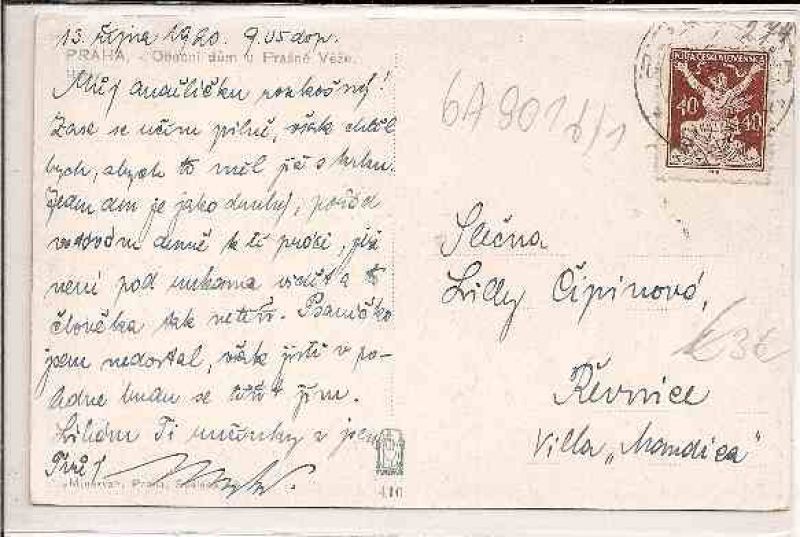 13. října 1920. 9.05 dop.
PRAHA. - Obecní dům u Prašné Věže.
Můj andílíčku rozkošný!
Zase se učím pilně, však chtěl
bych, abych to měl již s krku.
Jeden den je jako druhý, pořád
denně k té práci, již
není pod rukama vidět a to
člověka tak netěší. Psaníčko
jsem nedostal, však jistě v po-
ledne budu se těšit jím.
Líbám Ti ručenky a jsem
Tvůj
"Minerva", Praha,
410
274
POŠTA ČESKOSLOVENSKÁ
40 40
6A901b/1
Slečna
Lilly Čipinová,
€3€
Řevnice
Villa „Mandica"